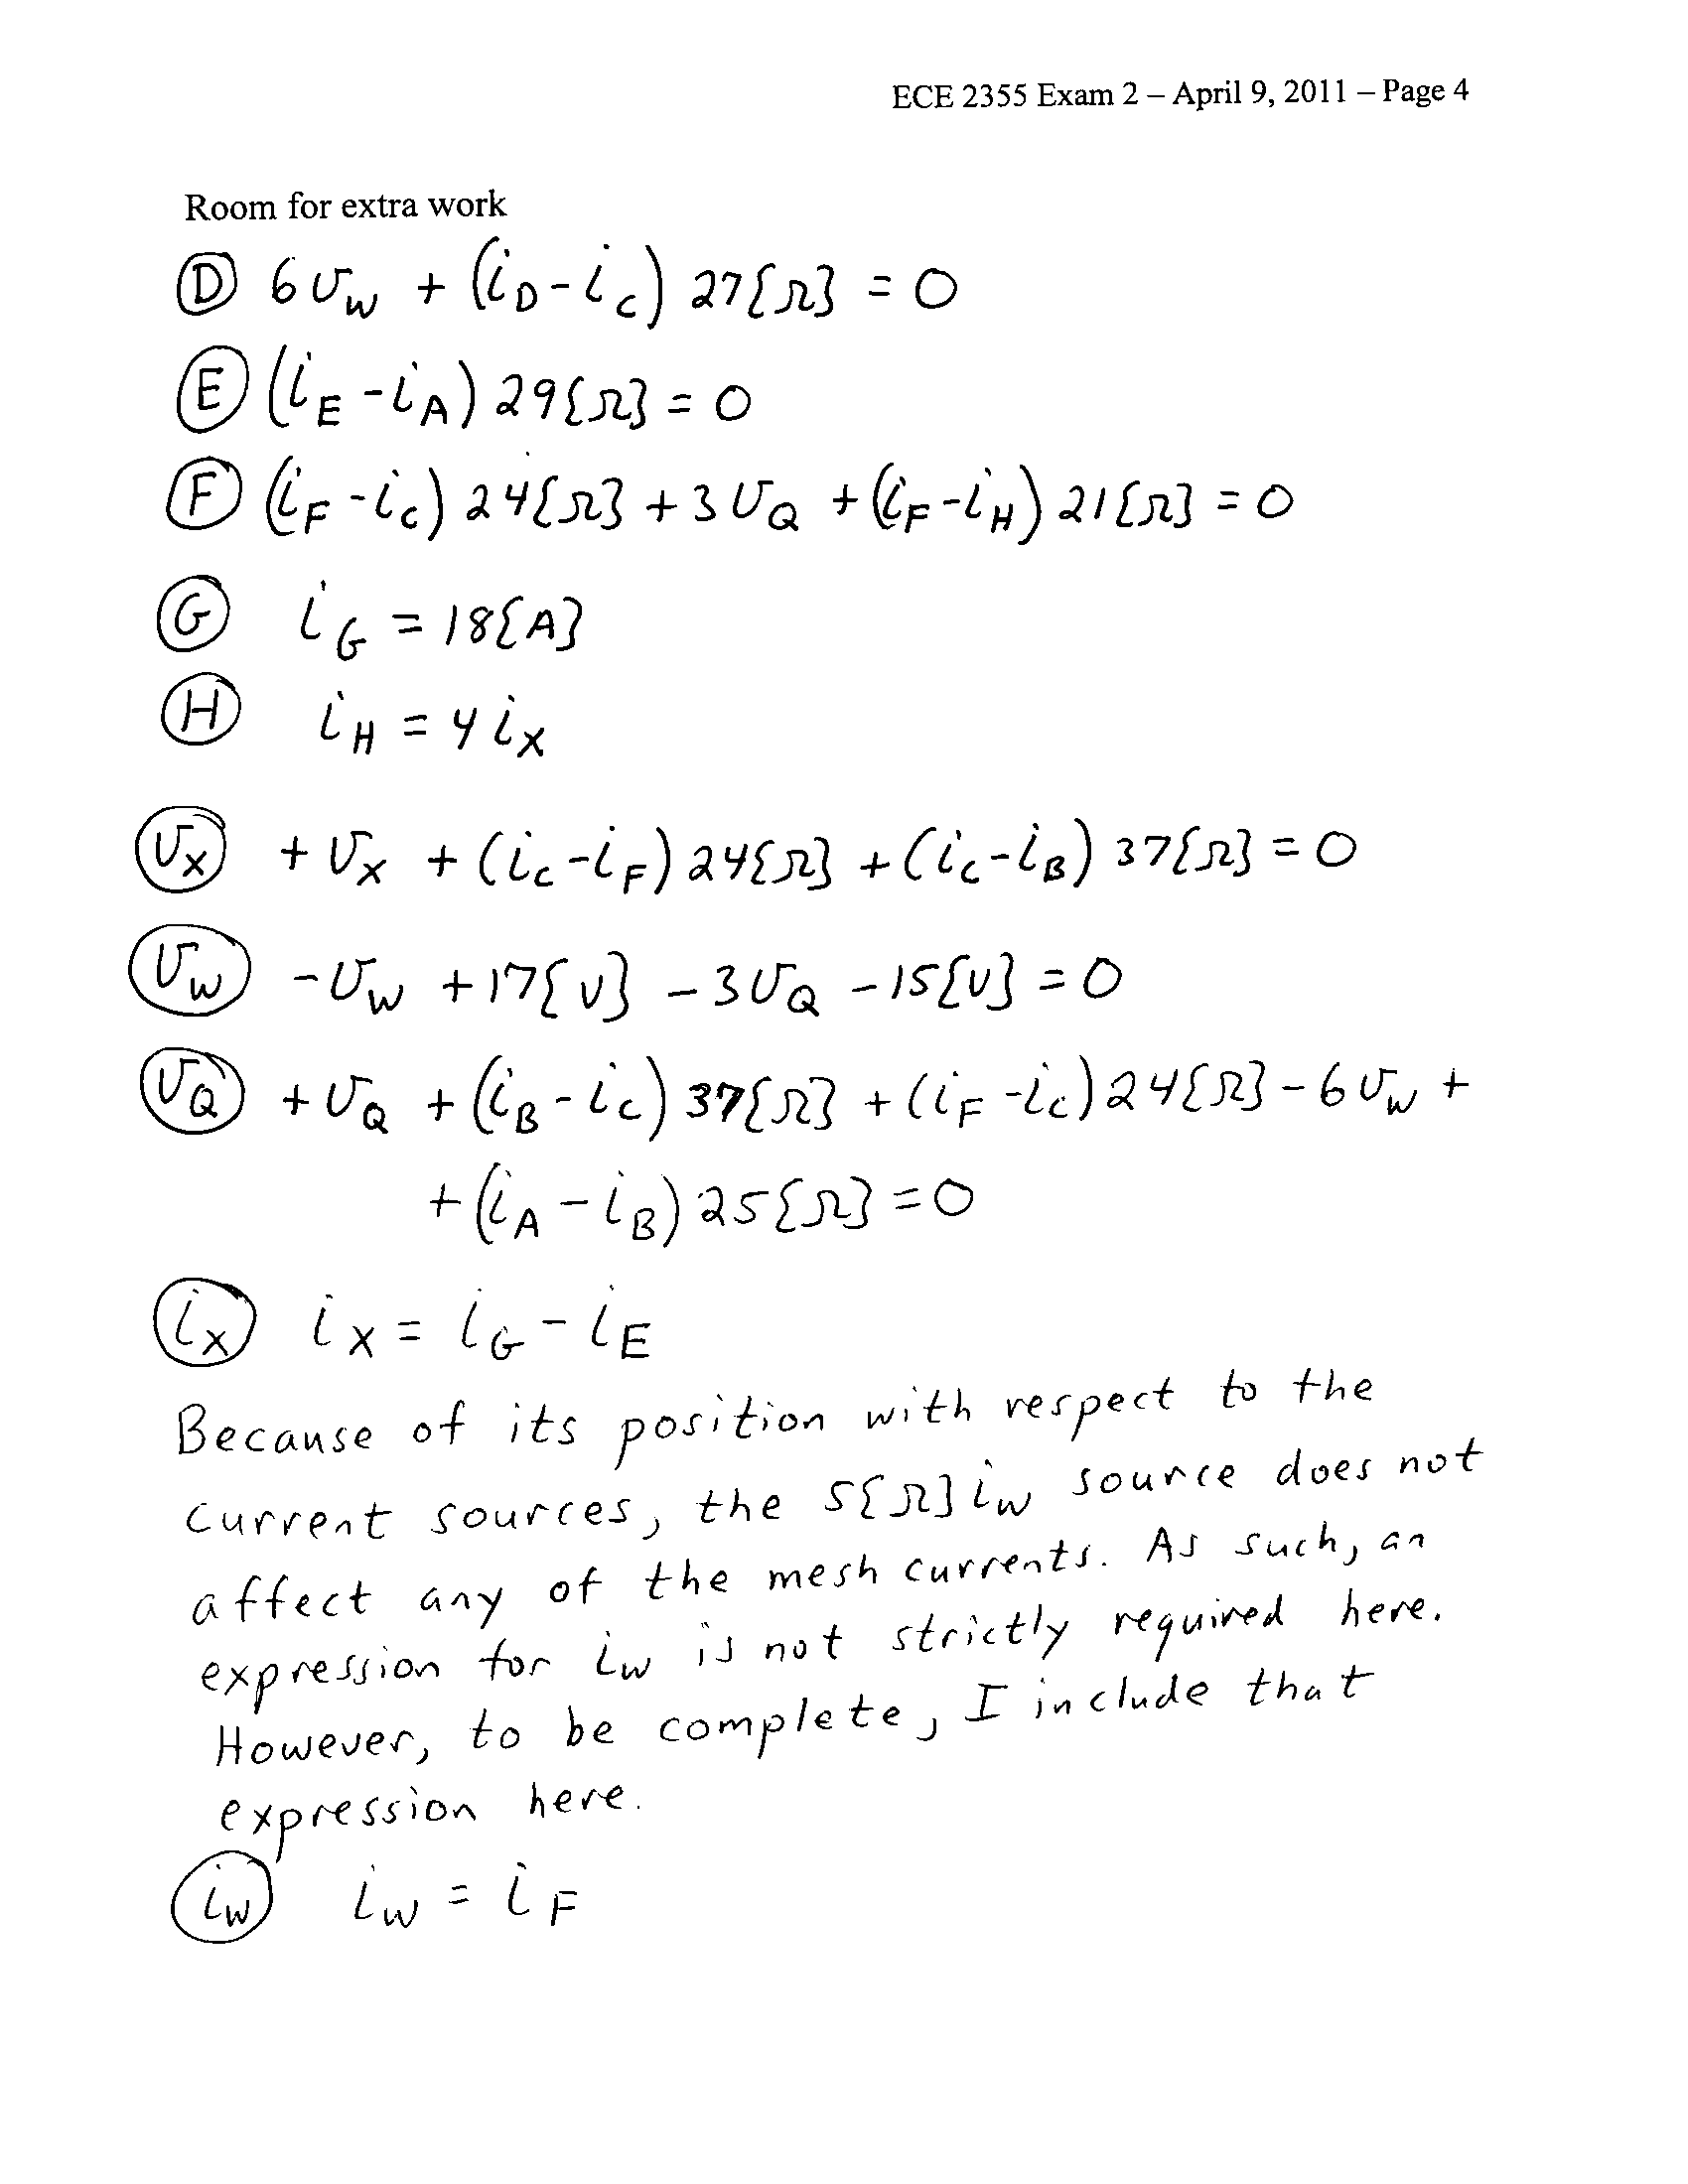 ECE 2355 Exam 2 – April 9, 2011 – Page 4
Room for extra work
(D) 6v_W + (i_D - i_C) 27{Ω} = 0
(E) (i_E - i_A) 29{Ω} = 0
(F) (i_F - i_C) 24{Ω} + 3v_Q + (i_F - i_H) 21{Ω} = 0
(G) i_G = 18{A}
(H) i_H = 4 i_X
(v_X) + v_X + (i_C - i_F) 24{Ω} + (i_C - i_B) 37{Ω} = 0
(v_W) - v_W + 17{V} - 3v_Q - 15{V} = 0
(v_Q) + v_Q + (i_B - i_C) 37{Ω} + (i_F - i_C) 24{Ω} - 6v_W +
+ (i_A - i_B) 25{Ω} = 0
(i_X) i_X = i_G - i_E
Because of its position with respect to the
current sources, the 5{Ω} i_W source does not
affect any of the mesh currents. As such, an
expression for i_W is not strictly required here.
However, to be complete, I include that
expression here.
(i_W) i_W = i_F